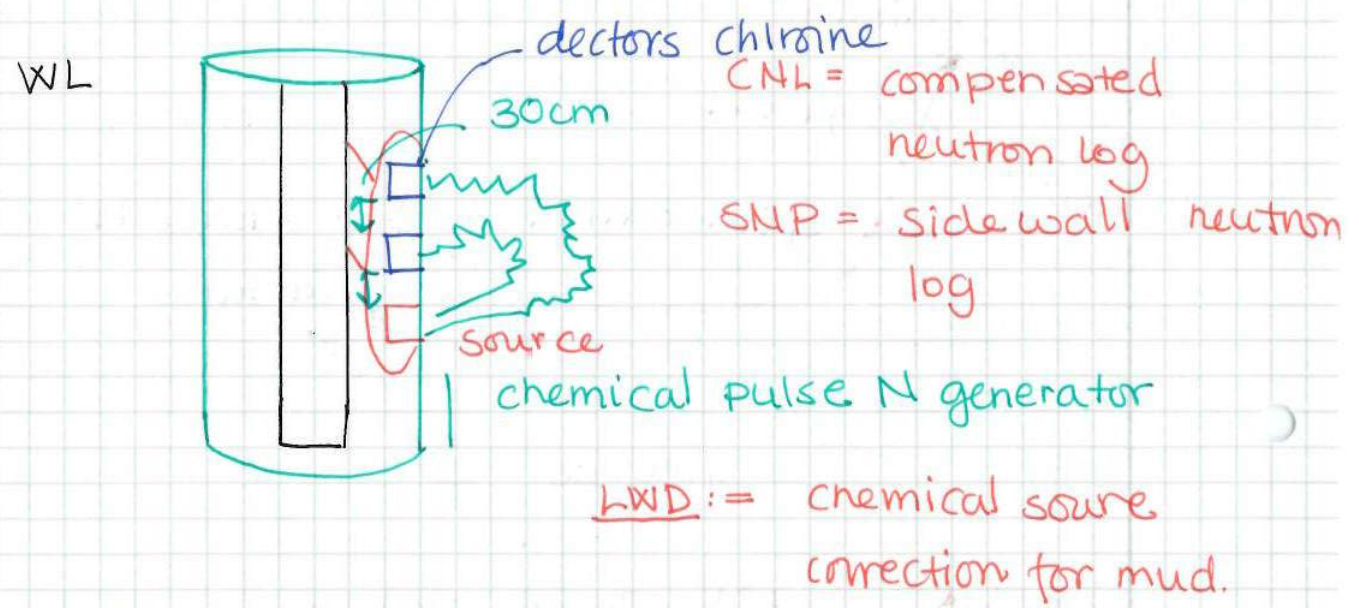 WL
dectors chlroine
30cm
CNL = compensated
neutron log
SNP = side wall neutron
log
source
chemical pulse N generator
LWD := chemical soure
correction for mud.